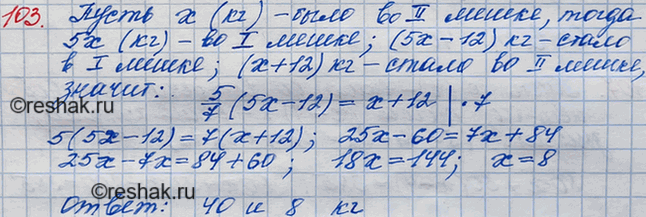 103. Пусть x (кг) - было во II мешке, тогда
5x (кг) - во I мешке; (5x-12) кг - стало
в I мешке; (x+12) кг - стало во II мешке,
значит: 5/7 (5x-12) = x+12 | · 7
5(5x-12) = 7(x+12); 25x-60=7x+84
25x-7x=84+60; 18x=144; x=8
Ответ: 40 и 8 кг